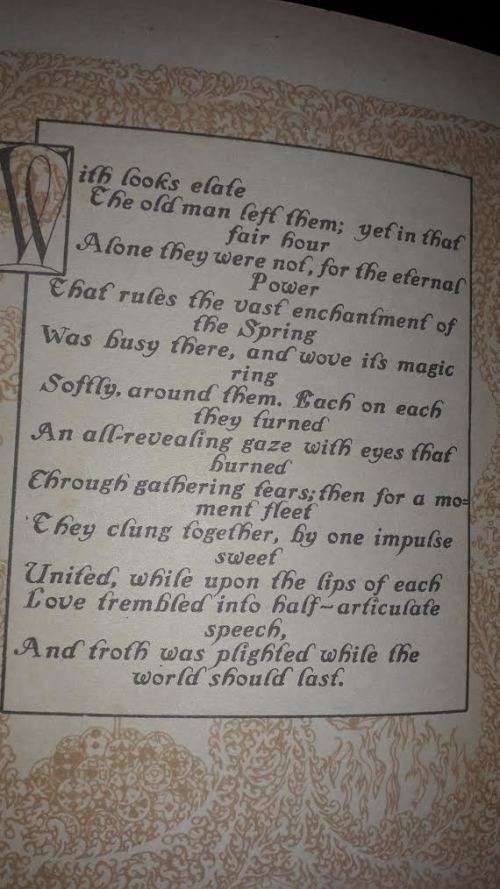 With looks elate
The old man left them; yet in that
fair hour
Alone they were not, for the eternal
Power
That rules the vast enchantment of
the Spring
Was busy there, and wove its magic
ring
Softly, around them. Each on each
they turned
An all-revealing gaze with eyes that
burned
Through gathering tears; then for a mo=
ment fleet
They clung together, by one impulse
sweet
United, while upon the lips of each
Love trembled into half-articulate
speech,
And troth was plighted while the
world should last.